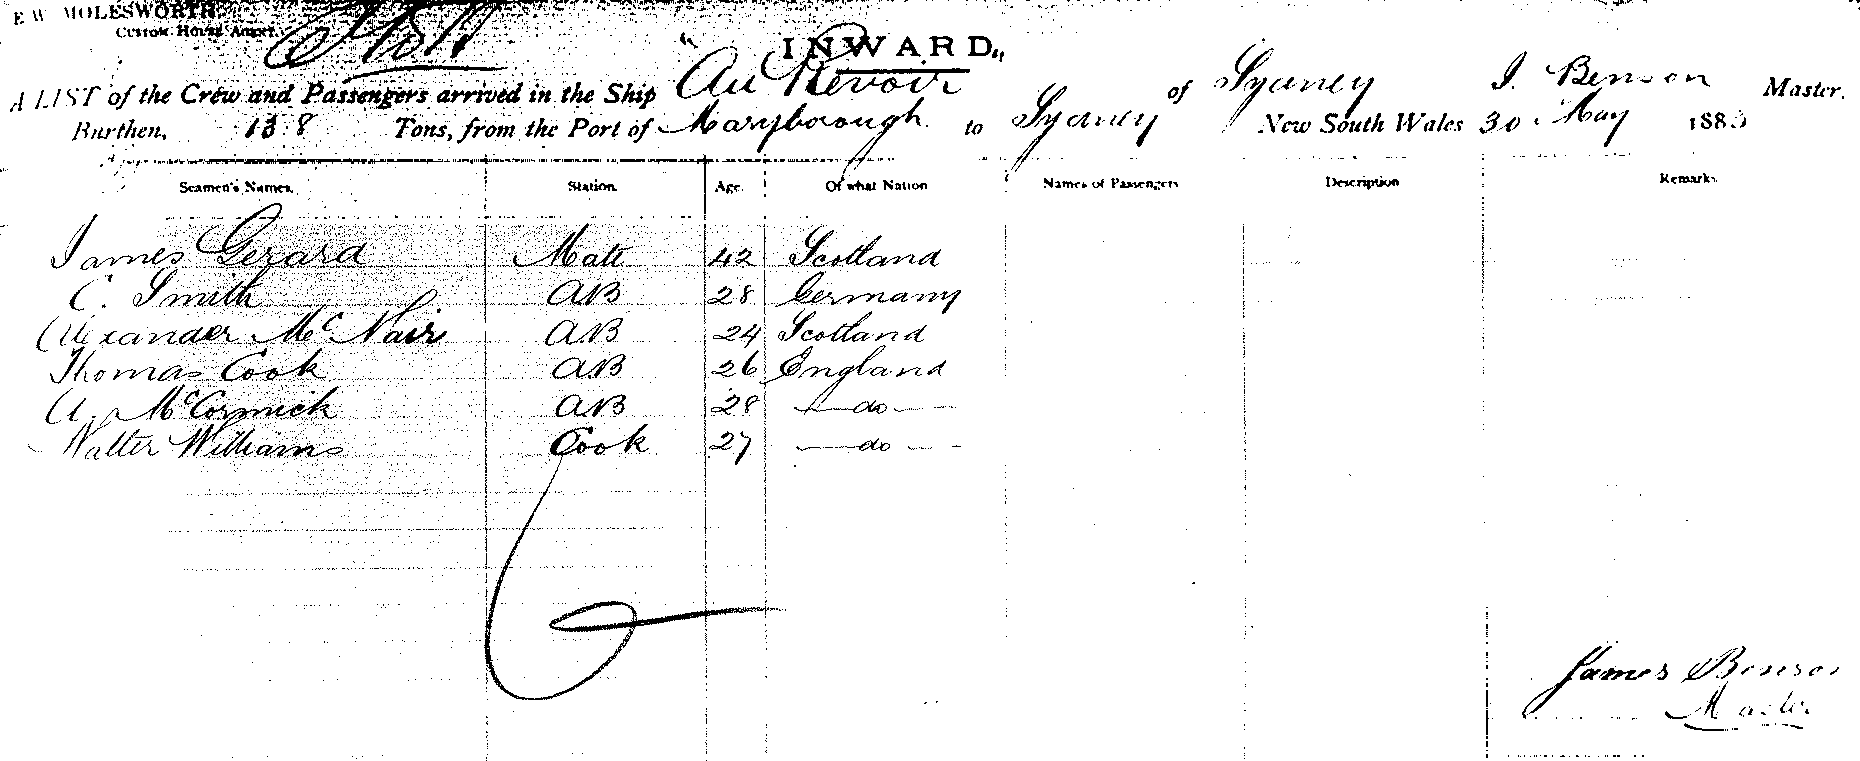 E W MOLESWORTH
Custom House Agent.
INWARD.
A LIST of the Crew and Passengers arrived in the Ship "Au Revoir of Sydney J. Benson Master.
Burthen, 138 Tons, from the Port of Maryborough to Sydney New South Wales 30 May 188
Seamen's Names. Station. Age. Of what Nation Names of Passengers Description Remarks
James Gerard Mate 42 Scotland
C. Smith AB 28 Germany
Alexander McNair AB 24 Scotland
Thomas Cook AB 26 England
A. McCormick AB 28 — do —
Walter Williams Cook 27 — do —
James Benson
Master